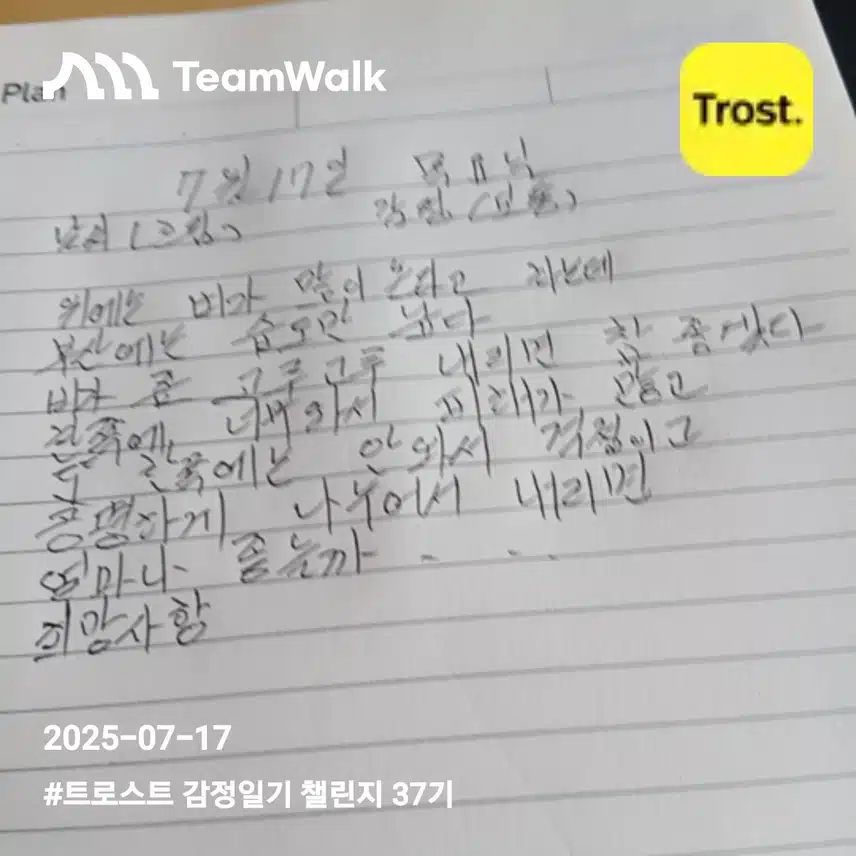 TeamWalk
Plan
Trost.
7월 17일 목요일
날씨 (흐림) 감정 (보통)
위에는 비가 많이 온다고 하는데
부산에는 습도만 높다
비가 좀 고루고루 내리면 참 좋겠다
한쪽에 너무 와서 피해가 많고
또 한쪽에는 안 와서 걱정이고
공평하게 나누어서 내리면
얼마나 좋을까 - ...
희망사항
2025-07-17
#트로스트 감정일기 챌린지 37기